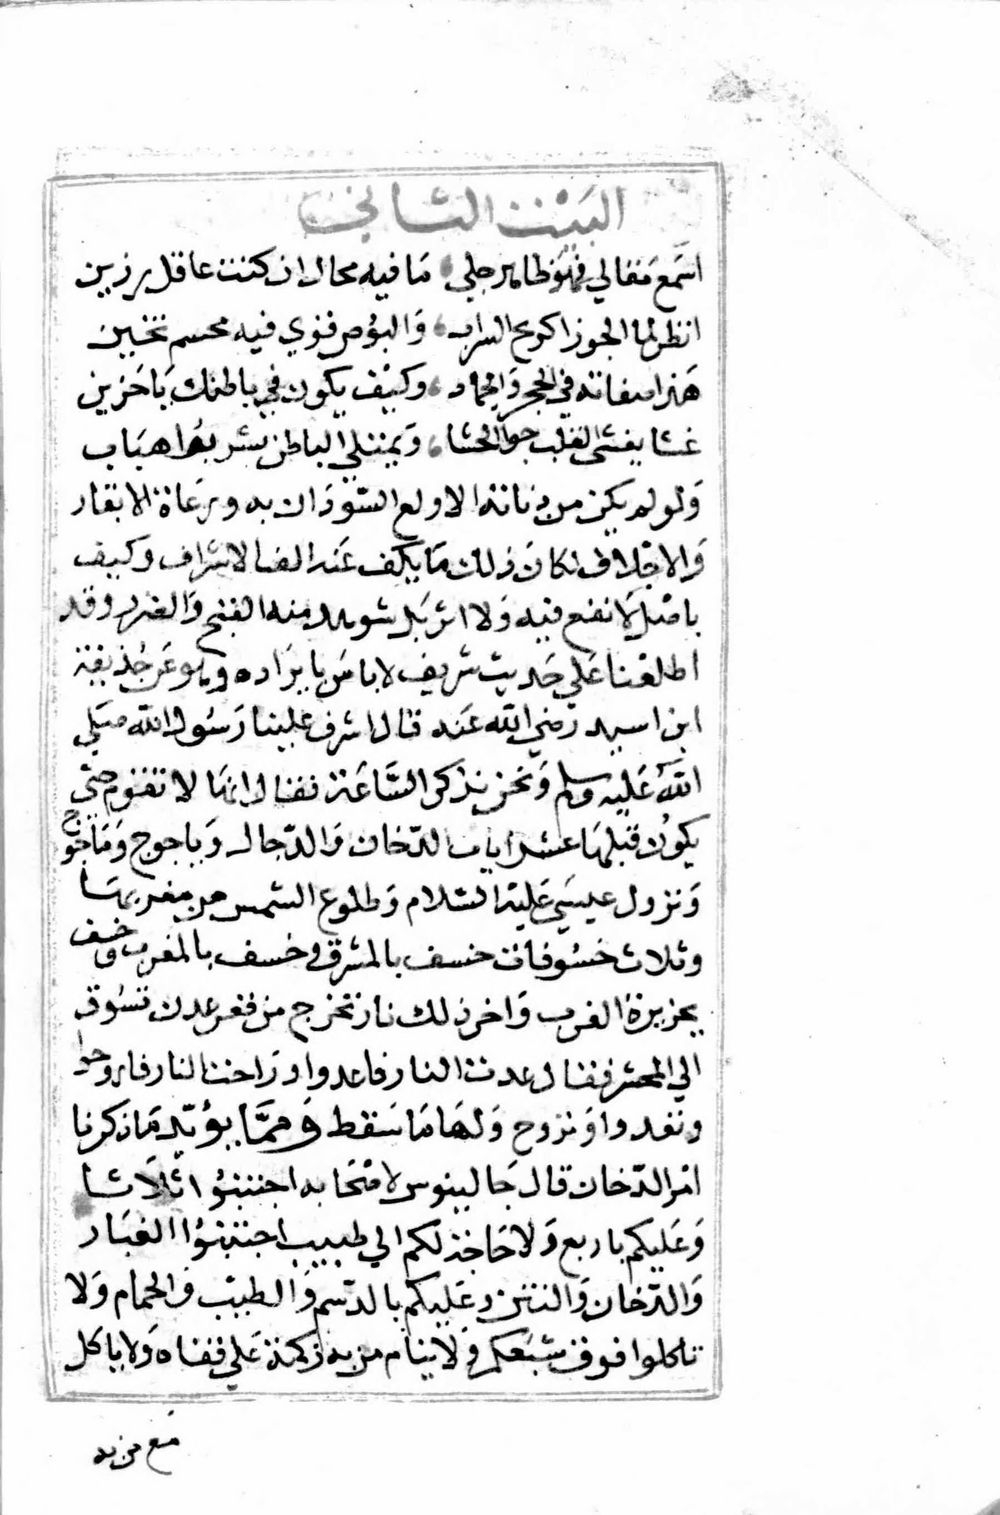 البيت الثاني
اسمع مقالي فهو ظاهر جلي ، مافيه محال ان كنت عاقل رزين
انظر لما الجوزا كريح السراب ، والبوص قوي فيه محسم تخين
هذا صفاته في الحجر والجماد ، وكيف يكون في باطنك يا حزين
غشا يغشى القلب جوا الحشا ، ويمتلي الباطن بشربو اهباب
ولو لم يكن من دنائته الا ولع السودان به ورعاة الابقار
والاجلاف لكان ذلك مايكف عنه الاشراف وكيف
باصل لا نفع فيه ولا اثر بل شوهد منه القبح والضرر وقد
اطلعنا على حديث شريف لا باس بايراده وهو عن حذيفة
ابن اسيد رضي الله عنه قال اشرف علينا رسول الله صلى
الله عليه وسلم ونحن نذكر الساعة فقال انها لا تقوم حتى
يكون قبلها عشر ايات الدخان والدجال وياجوج وماجوج
ونزول عيسى عليه السلام وطلوع الشمس من مغربها
وثلاث خسوفات خسف بالمشرق وخسف بالمغرب وخسف
بجزيرة العرب واخر ذلك نار تخرج من قعر عدن تسوق
الي المحشر فقال غدت النار فاغدوا وراحت النار فاروحوا
وتغدوا وتروح ولها ما سقط ومما يؤيد ما ذكرنا
امر الدخان قال جالينوس لاصحابه اجتنبوا ثلاثا
وعليكم باربع ولا حاجة لكم الي طبيب اجتنبوا الغبار
والدخان والنتن وعليكم بالدسم والطيب والحمام ولا
تاكلوا فوق شبعكم ولا ينام من به زكمة علي قفاه ولا ياكل
من به